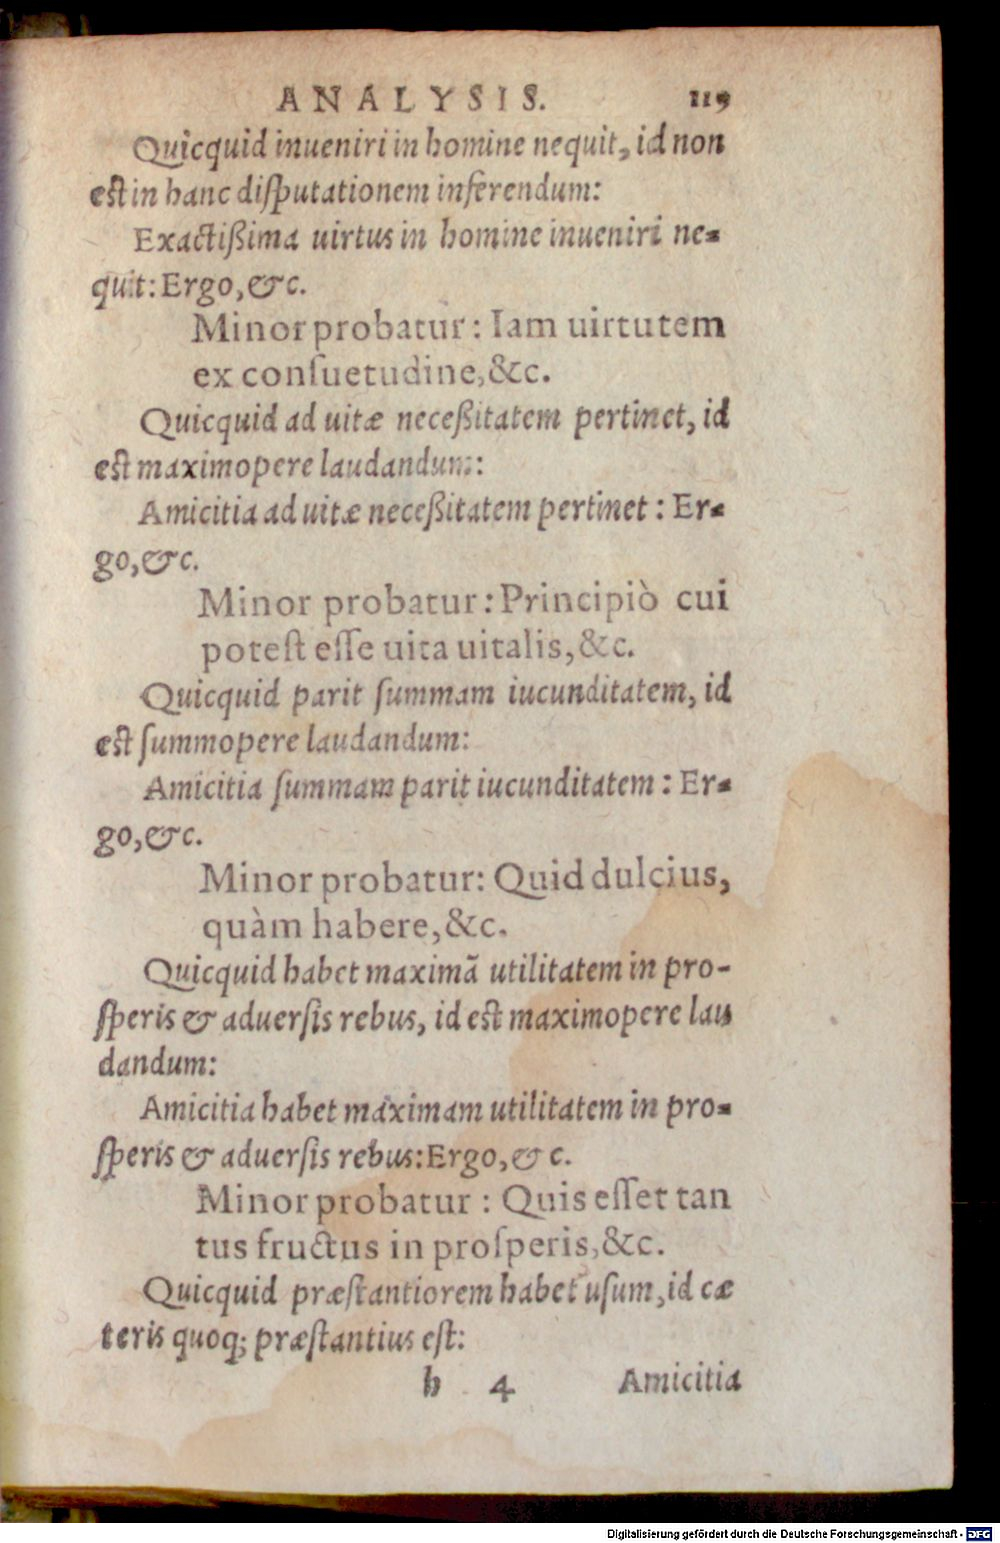 ANALYSIS. 119
Quicquid inueniri in homine nequit, id non
est in hanc diſputationem inferendum:
Exactißima uirtus in homine inueniri ne-
quit: Ergo, &c.
Minor probatur: Iam uirtutem
ex conſuetudine, &c.
Quicquid ad uitæ neceßitatem pertinet, id
est maximopere laudandum:
Amicitia ad uitæ neceßitatem pertinet: Er-
go, &c.
Minor probatur: Principiò cui
poteſt eſſe uita uitalis, &c.
Quicquid parit ſummam iucunditatem, id
est ſummopere laudandum:
Amicitia ſummam parit iucunditatem: Er-
go, &c.
Minor probatur: Quid dulcius,
quàm habere, &c.
Quicquid habet maximā utilitatem in pro-
ſperis & aduerſis rebus, id est maximopere lau
dandum:
Amicitia habet maximam utilitatem in pro-
ſperis & aduerſis rebus: Ergo, & c.
Minor probatur: Quis eſſet tan
tus fructus in proſperis, &c.
Quicquid præſtantiorem habet uſum, id cæ
teris quoq; præſtantius eſt:
h 4 Amicitia
Digitalisierung gefördert durch die Deutsche Forschungsgemeinschaft - DFG